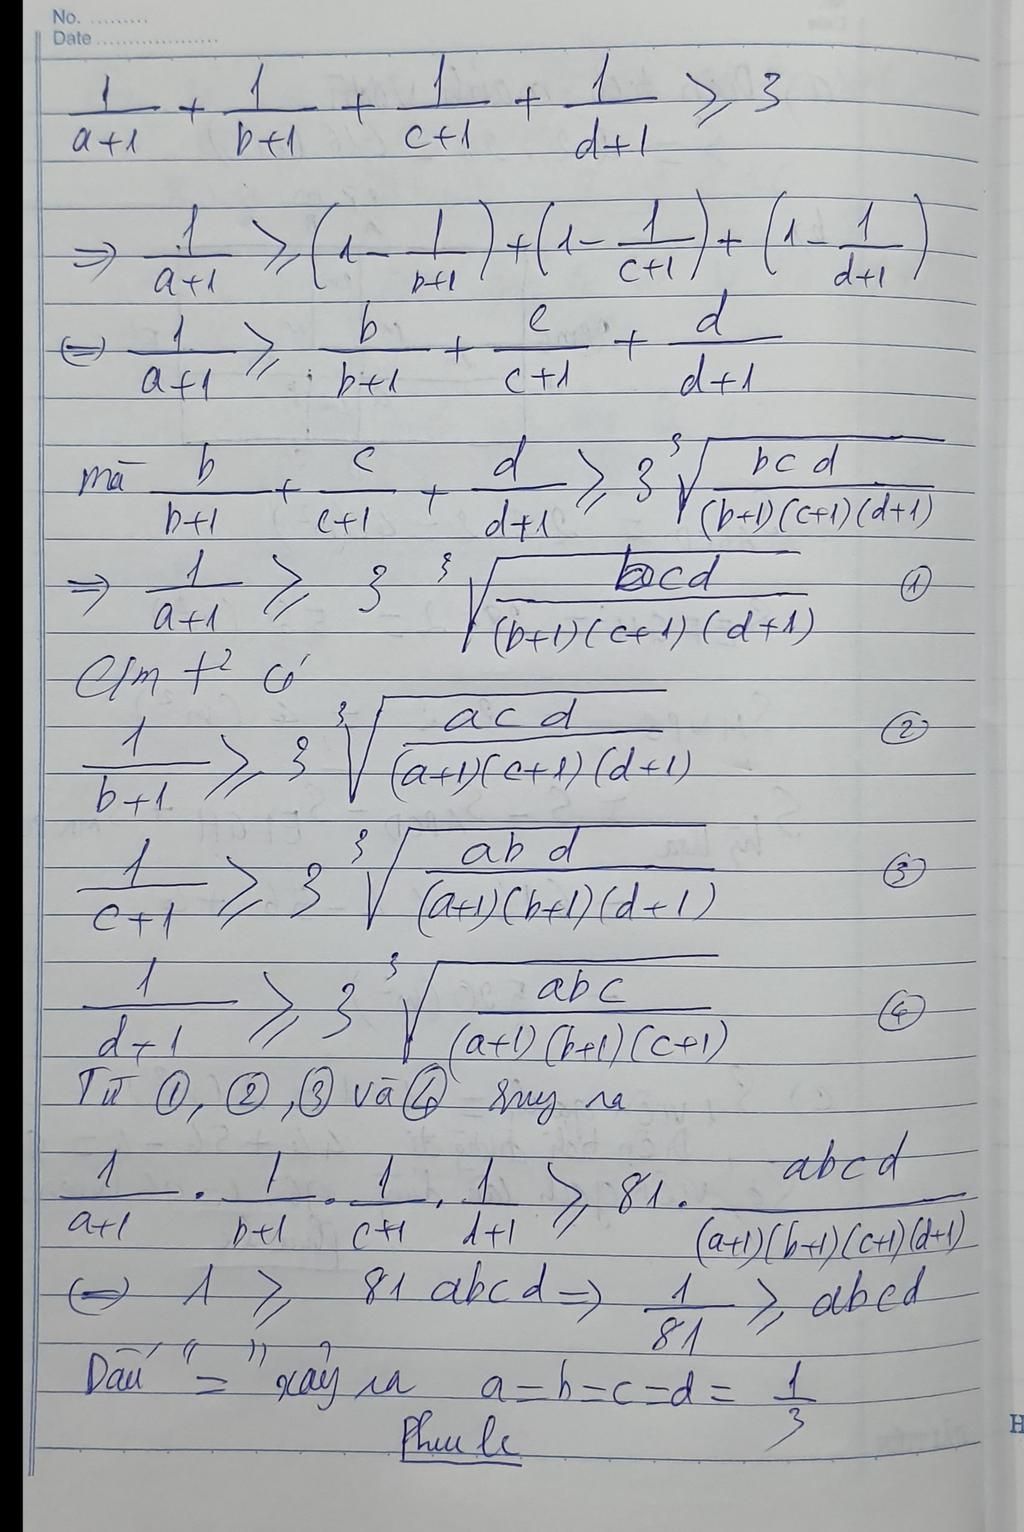 No. .........
Date ...................
1/(a+1) + 1/(b+1) + 1/(c+1) + 1/(d+1) ⩾ 3
⇒ 1/(a+1) ⩾ (1 - 1/(b+1)) + (1 - 1/(c+1)) + (1 - 1/(d+1))
⇔ 1/(a+1) ⩾ b/(b+1) + c/(c+1) + d/(d+1)
mà b/(b+1) + c/(c+1) + d/(d+1) ⩾ 3 ∛(bcd/((b+1)(c+1)(d+1)))
⇒ 1/(a+1) ⩾ 3 ∛(bcd/((b+1)(c+1)(d+1))) ①
C/m t² có
1/(b+1) ⩾ 3 ∛(acd/((a+1)(c+1)(d+1))) ②
1/(c+1) ⩾ 3 ∛(abd/((a+1)(b+1)(d+1))) ③
1/(d+1) ⩾ 3 ∛(abc/((a+1)(b+1)(c+1))) ④
Từ ①, ②, ③ và ④ suy ra
1/(a+1) . 1/(b+1) . 1/(c+1) . 1/(d+1) ⩾ 81 . abcd/((a+1)(b+1)(c+1)(d+1))
⇔ 1 ⩾ 81 abcd ⇒ 1/81 ⩾ abcd
Dấu "=" xảy ra a=b=c=d= 1/3